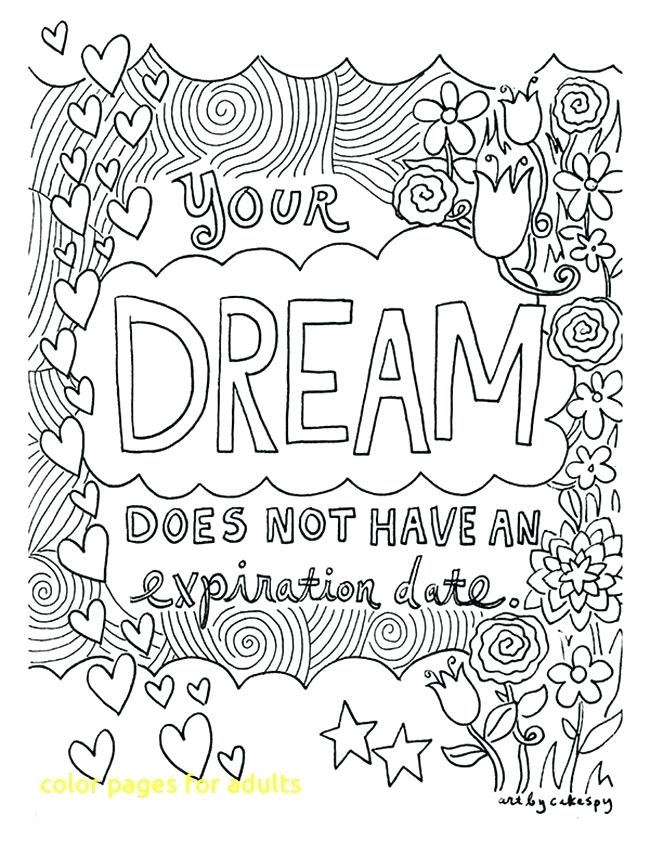 YOUR
DREAM
DOES NOT HAVE AN
expiration date.
color pages for adults
art by cakespy